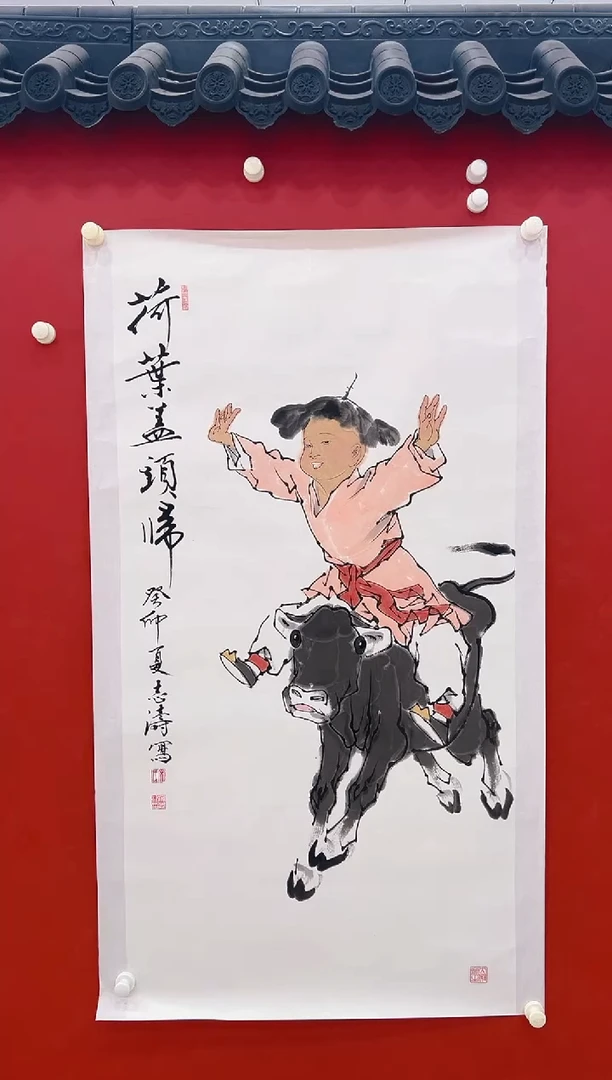 荷葉蓋頭歸
癸卯仲夏志濤寫